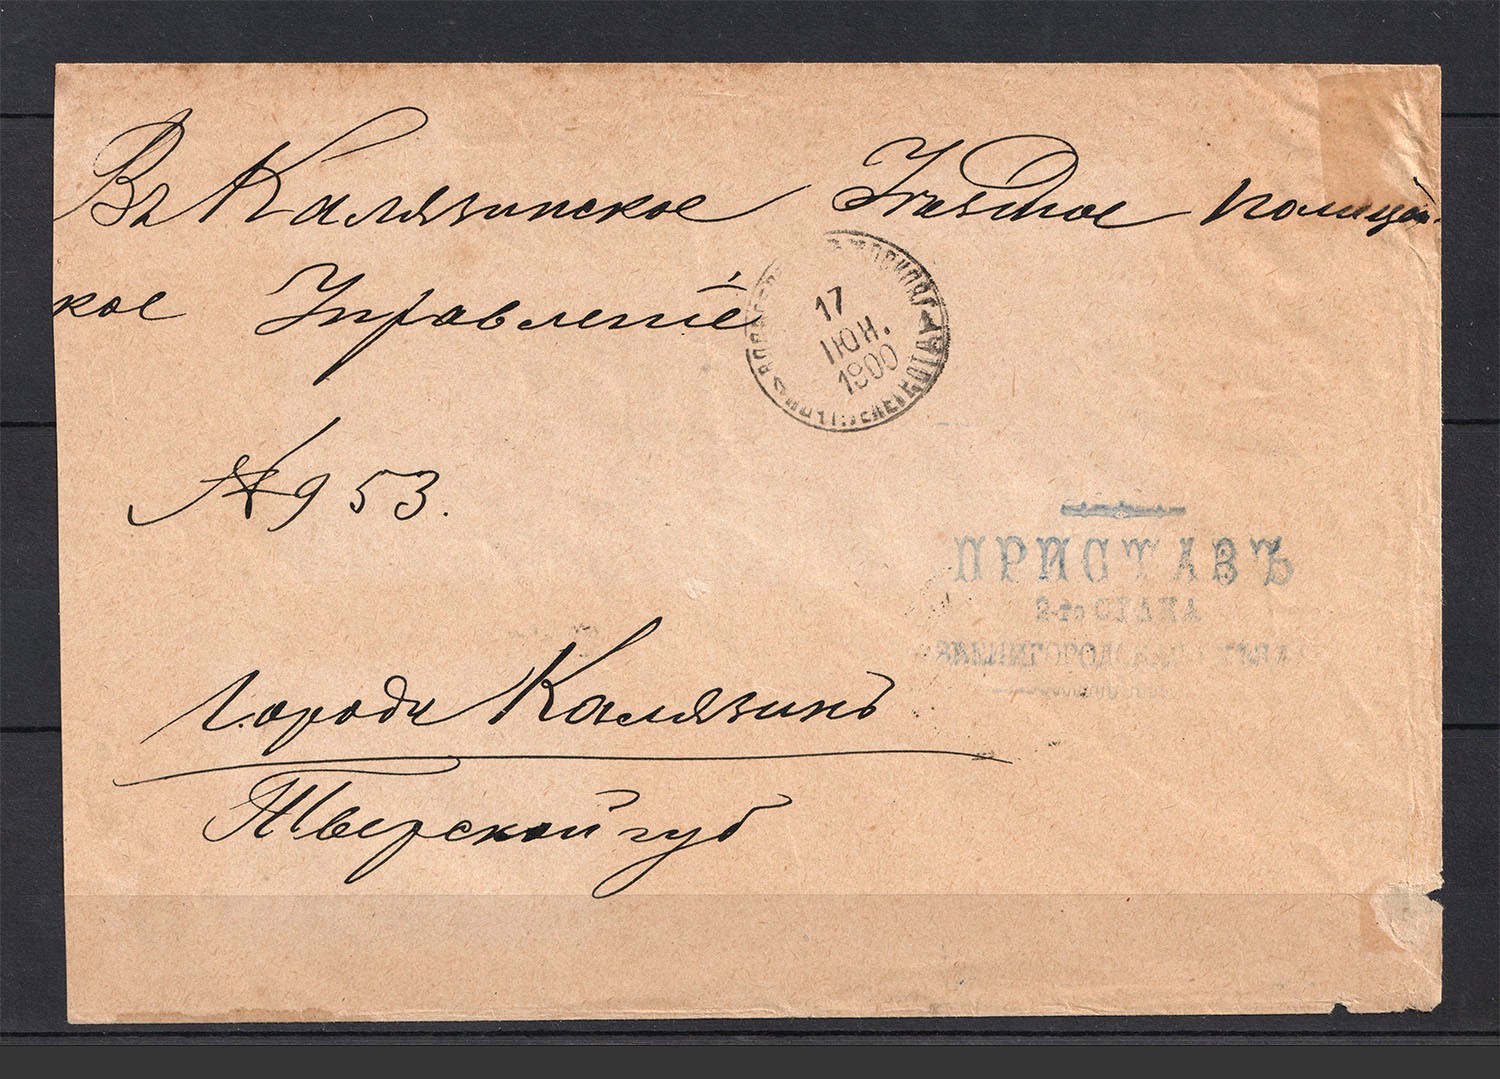 Въ Калязинское Уѣздное Полицей-
ское Управленіе
17
ІЮН.
1900
№ 953.
ПРИСТАВЪ
2-го СТАНА
ЗВЕНИГОРОДСКАГО УѢЗДА
Городъ Калязинъ
Тверской губ